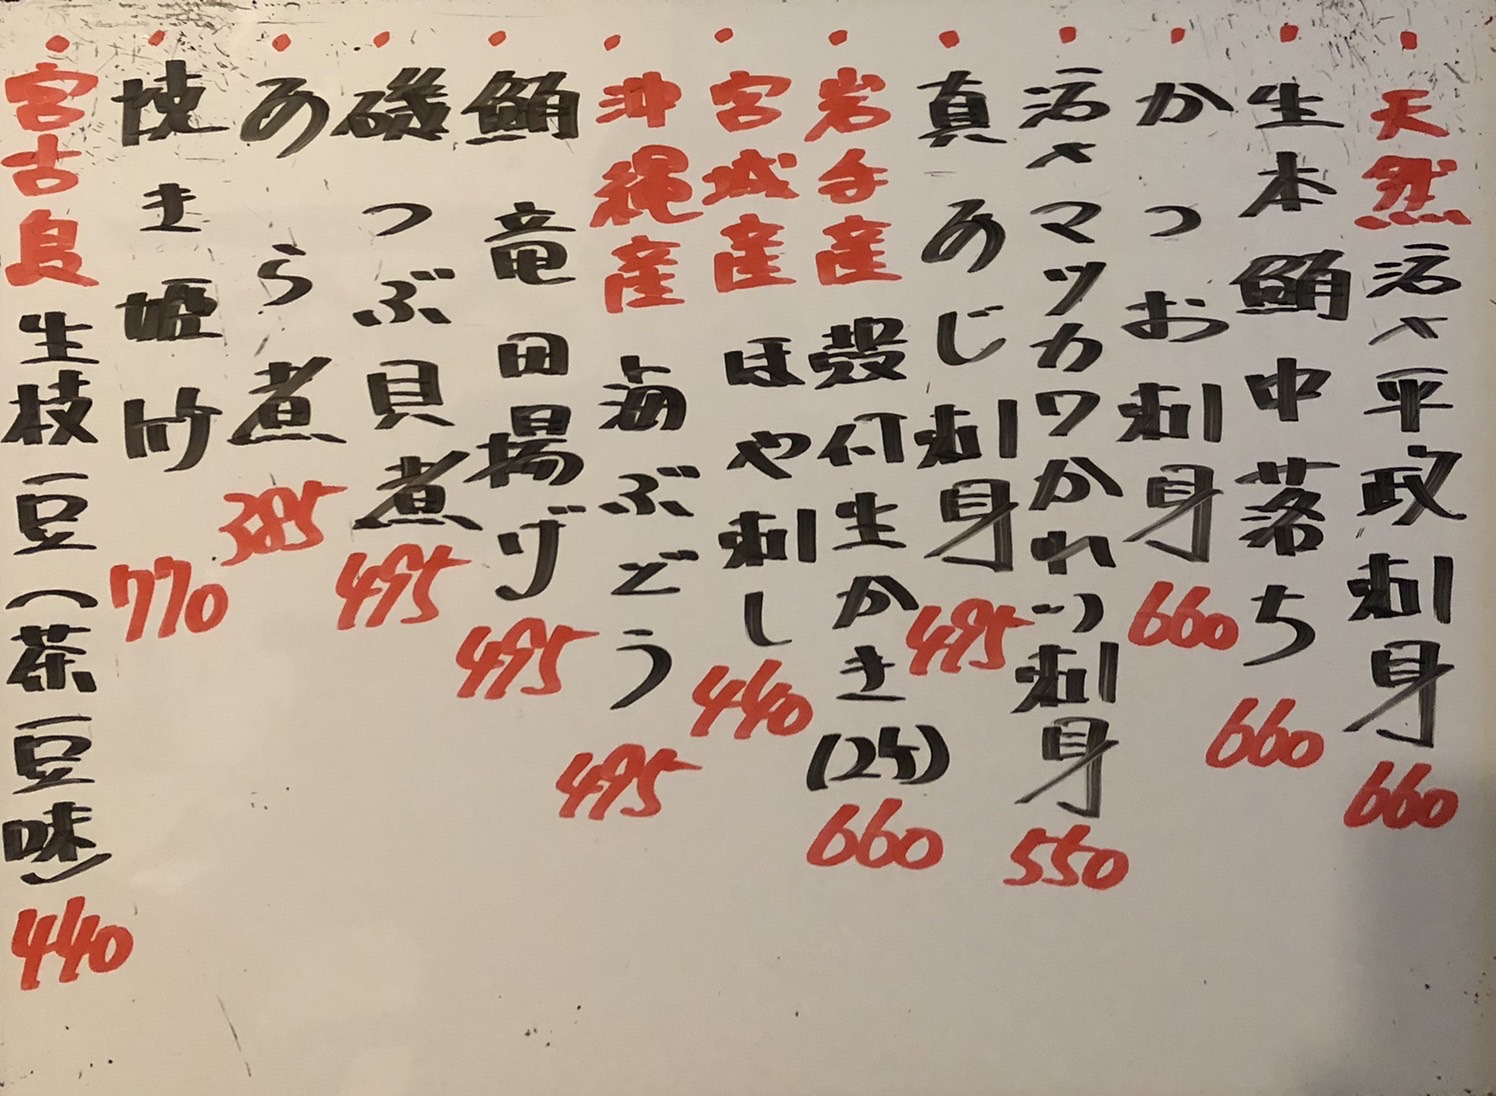 ・天然活〆平政刺身 660
・生本鮪中落ち 660
・かつお刺身 660
・活〆マツカワかれい刺身 550
・真あじ刺身 495
・岩手産 殻付生かき(2ケ) 660
・宮城産 ほや刺し 440
・沖縄産 海ぶどう 495
・鮪竜田揚げ 495
・磯つぶ貝煮 495
・あら煮 385
・焼き姫竹 770
・宮古島 生枝豆(茶豆味) 440